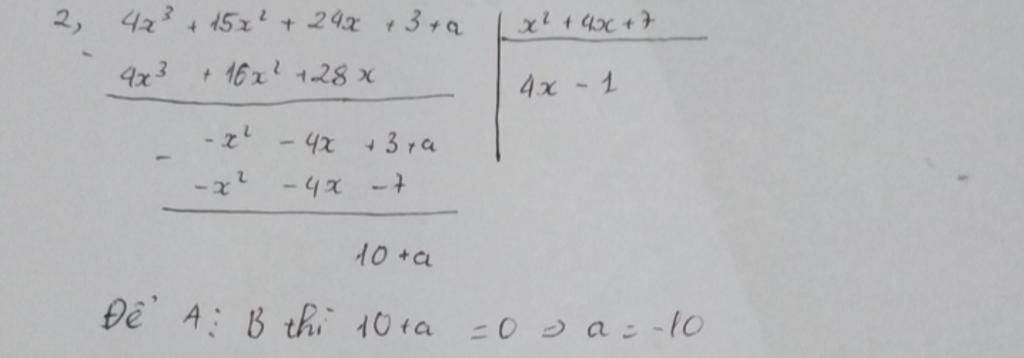 2, 4x³ + 15x² + 24x + 3 + a | x² + 4x + 7
- 4x³ + 16x² + 28x | 4x - 1
-x² - 4x + 3 + a
- -x² - 4x - 7
10 + a
Để A ⋮ B thì 10 + a = 0 => a = -10